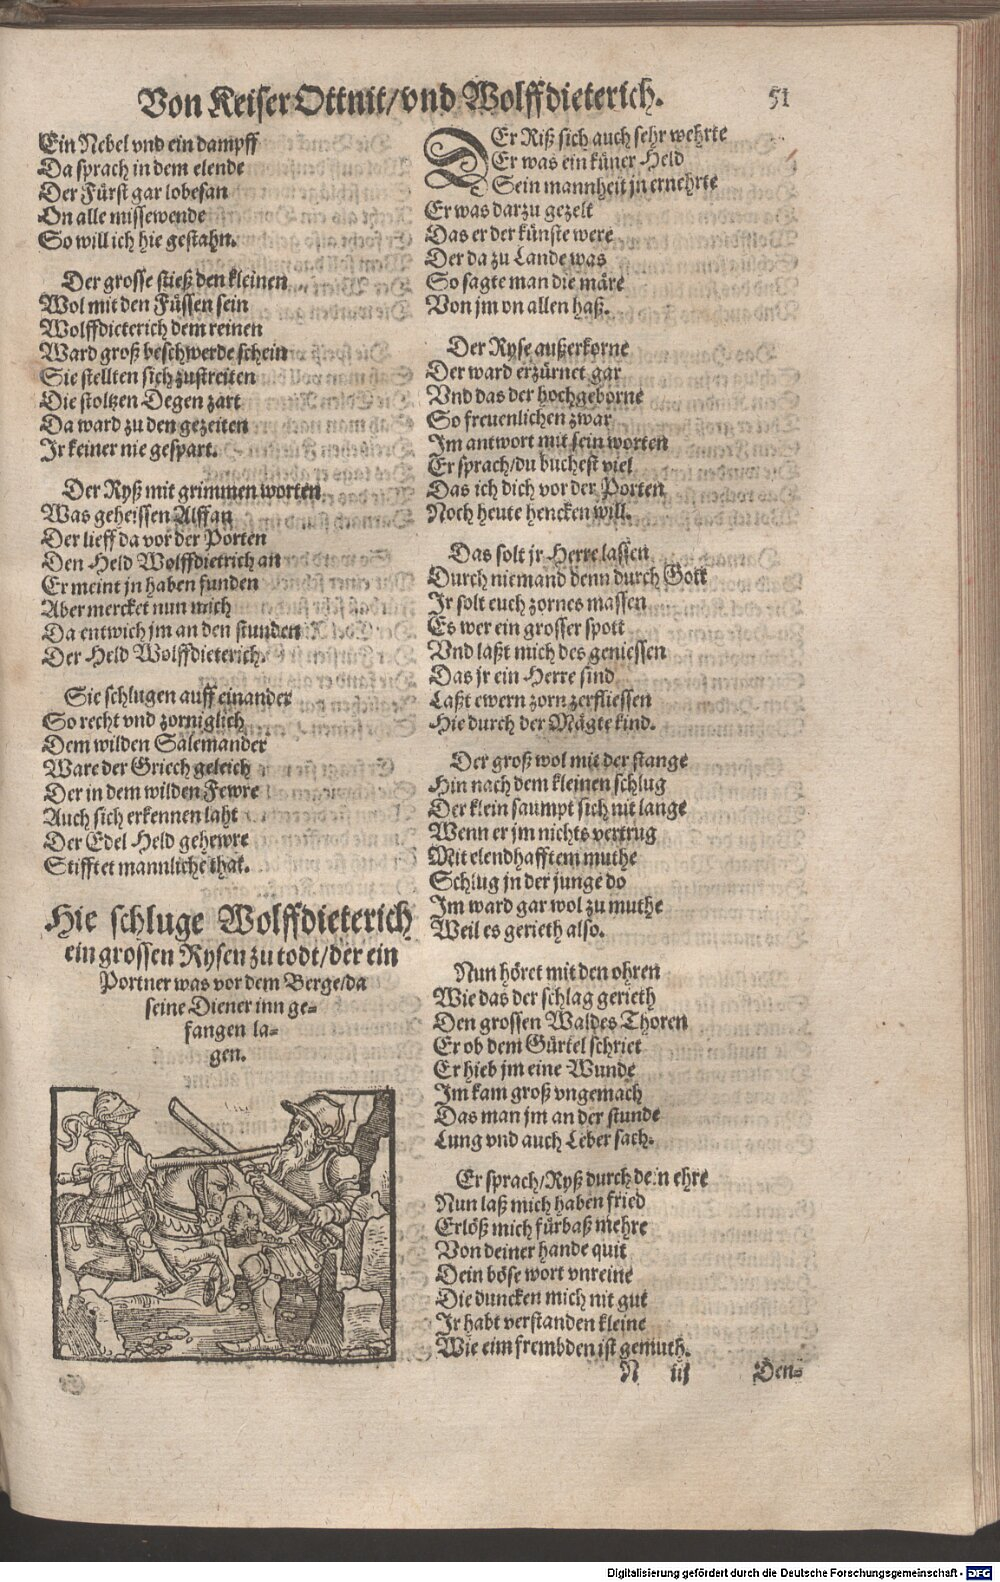 Von Keiser Ottnit/vnd Wolffdieterich. 51
Ein Nebel vnd ein dampff
Da sprach in dem elende
Der Fürst gar lobesan
On alle missewende
So will ich hie gestahn.
Der grosse stieß den kleinen
Wol mit den Füssen sein
Wolffdieterich dem reinen
Ward groß beschwerde schein
Sie stellten sich zustreiten
Die stoltzen Degen zart
Da ward zu den gezeiten
Ir keiner nie gespart.
Der Ryß mit grimmen worten
Was geheissen Alffan
Der lieff da vor der Porten
Den Held Wolffdietrich an
Er meint jn haben funden
Aber mercket nun mich
Da entwich jm an den stunden
Der Held Wolffdieterich.
Sie schlugen auff einander
So recht vnd zorniglich
Dem wilden Salemander
Ware der Griech geleich
Der in dem wilden Fewre
Auch sich erkennen laht
Der Edel Held gehewre
Stifftet mannliche that.
Hie schluge Wolffdieterich
ein grossen Rysen zu todt/der ein
Portner was vor dem Berge/da
seine Diener inn ge-
fangen la-
gen.
DEr Riß sich auch sehr wehrte
Er was ein küner Held
Sein mannheit jn ernehrte
Er was darzu gezelt
Das er der künste were
Der da zu Lande was
So sagte man die märe
Von jm on allen haß.
Der Ryse außerkorne
Der ward erzürnet gar
Vnd das der hochgeborne
So freuenlichen zwar
Im antwort mit sein worten
Er sprach/du buchest viel
Das ich dich vor der Porten
Noch heute hencken will.
Das solt jr Herre lassen
Durch niemand denn durch Gott
Ir solt euch zornes massen
Es wer ein grosser spott
Vnd laßt mich des geniessen
Das jr ein Herre sind
Laßt ewern zorn zerfliessen
Hie durch der Mägte kind.
Der groß wol mit der stange
Hin nach dem kleinen schlug
Der klein saumpt sich nit lange
Wenn er jm nichts vertrug
Mit elendhafftem muthe
Schlug jn der junge do
Im ward gar wol zu muthe
Weil es gerieth also.
Nun höret mit den ohren
Wie das der schlag gerieth
Den grossen Waldes Thoren
Er ob dem Gürtel schriet
Er hieb jm eine Wunde
Im kam groß vngemach
Das man jm an der stunde
Lung vnd auch Leber sach.
Er sprach/Ryß durch dein ehre
Nun laß mich haben fried
Erlöß mich fürbaß mehre
Von deiner hande quit
Dein böse wort vnreine
Die duncken mich nit gut
Ir habt verstanden kleine
Wie eim frembden ist gemuth.
N iij Den-
Digitalisierung gefördert durch die Deutsche Forschungsgemeinschaft - DFG